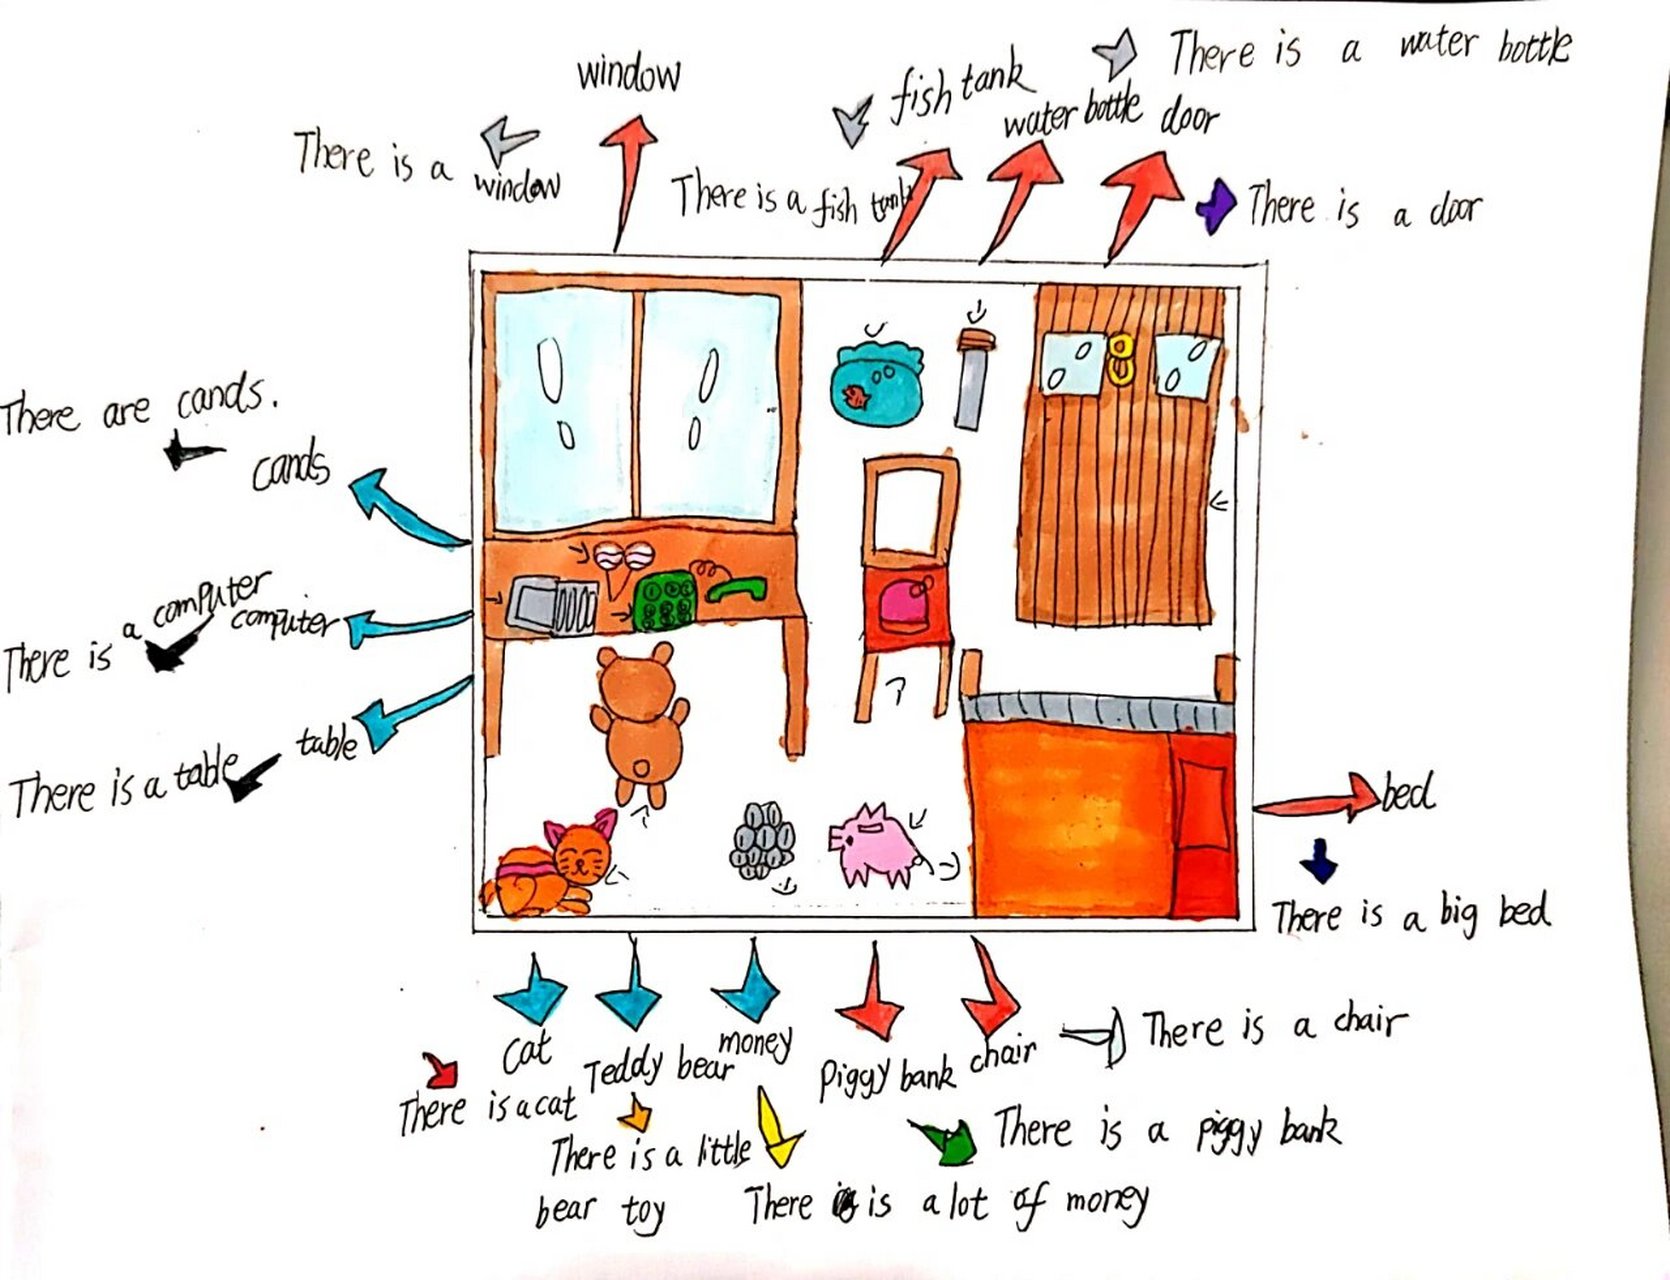 window
There is a window
fish tank
There is a fish tank
water bottle
There is a water bottle
door
There is a door
There are cands.
cands
computer
There is a computer
table
There is a table
bed
There is a big bed
cat
There is a cat
Teddy bear
There is a little
bear toy
money
There is a lot of money
Piggy bank
There is a piggy bank
chair
There is a chair